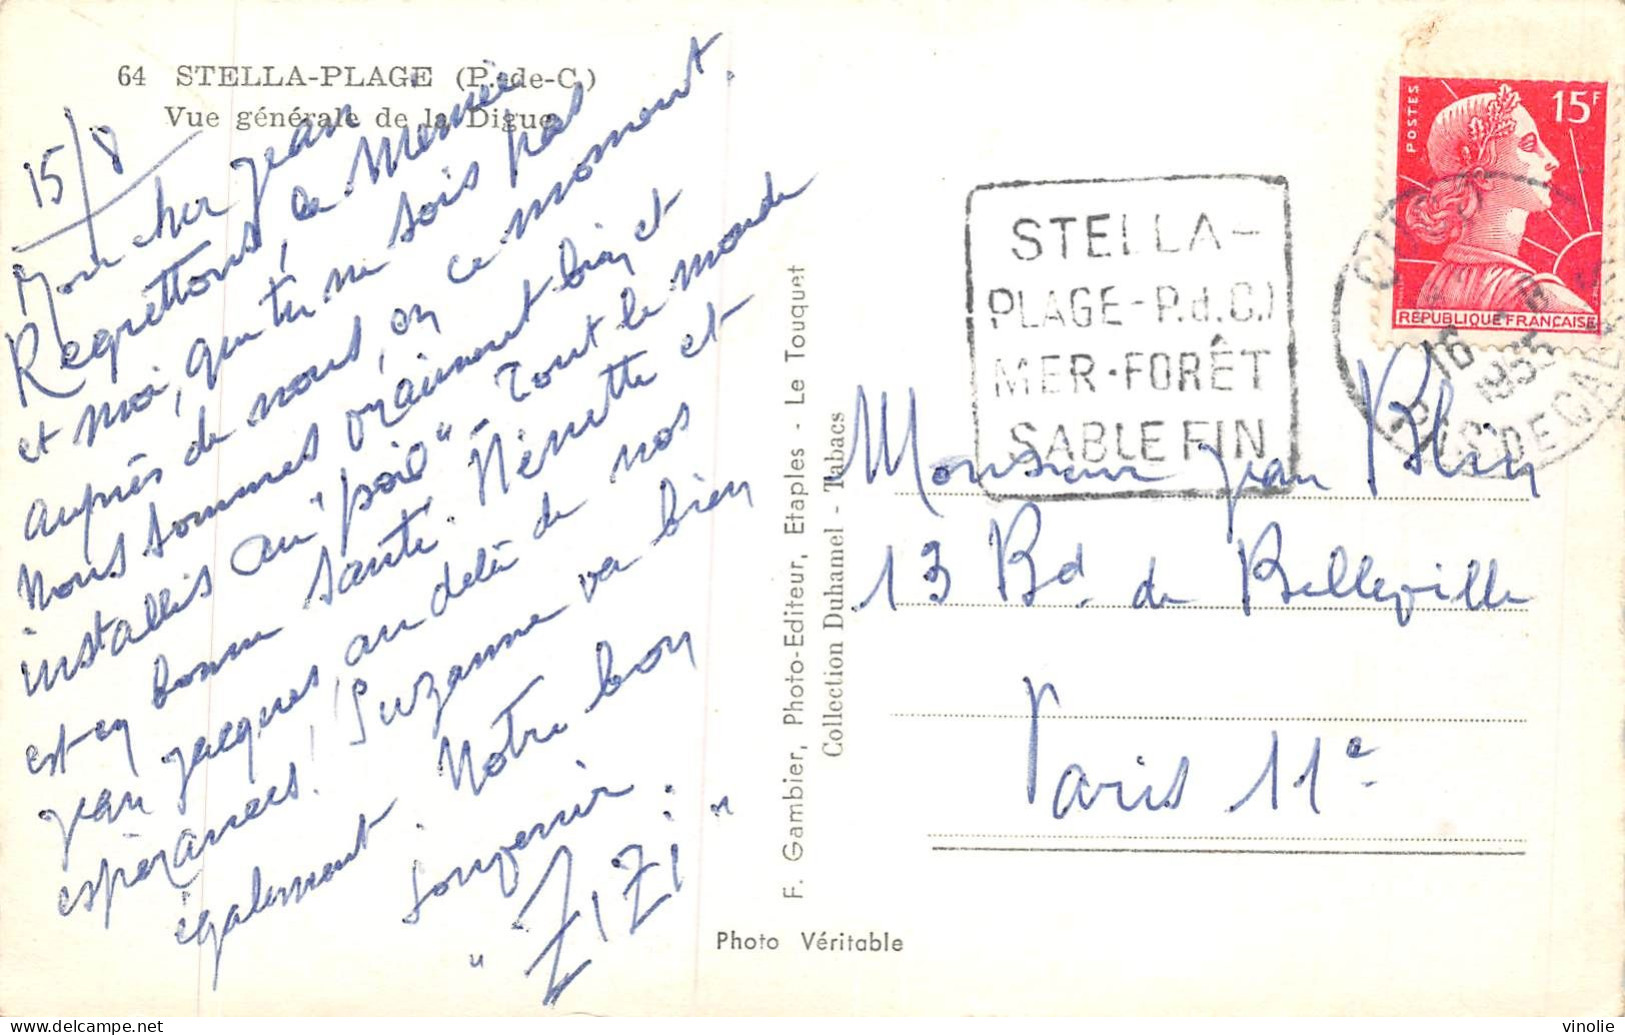 64 STELLA-PLAGE (P.-de-C.)
Vue générale de la Digue
15/8
Mon cher Jean
Regrettons, la Mémée
et moi, que tu ne sois pas
auprès de nous, en ce moment.
Nous sommes vraiment bien et
installés au "poil" - Tout le monde
est en bonne santé. Nénette et
Jean Jacques, au delà de nos
espérances ! Suzanne va bien
également. Notre bon
souvenir.
"ZIZI"
F. Gambier, Photo-Editeur, Etaples - Le Touquet
Collection Duhamel - Tabacs
Photo Véritable
STELLA-
PLAGE-P.d.C.)
MER·FORÊT
SABLE FIN
POSTES
15F
REPUBLIQUE FRANCAISE
CUCQ
16 - 8
1955
PAS DE CALAIS
Monsieur Jean Blin
13 Bd. de Belleville
Paris 11e
vinolie
delcampe.net